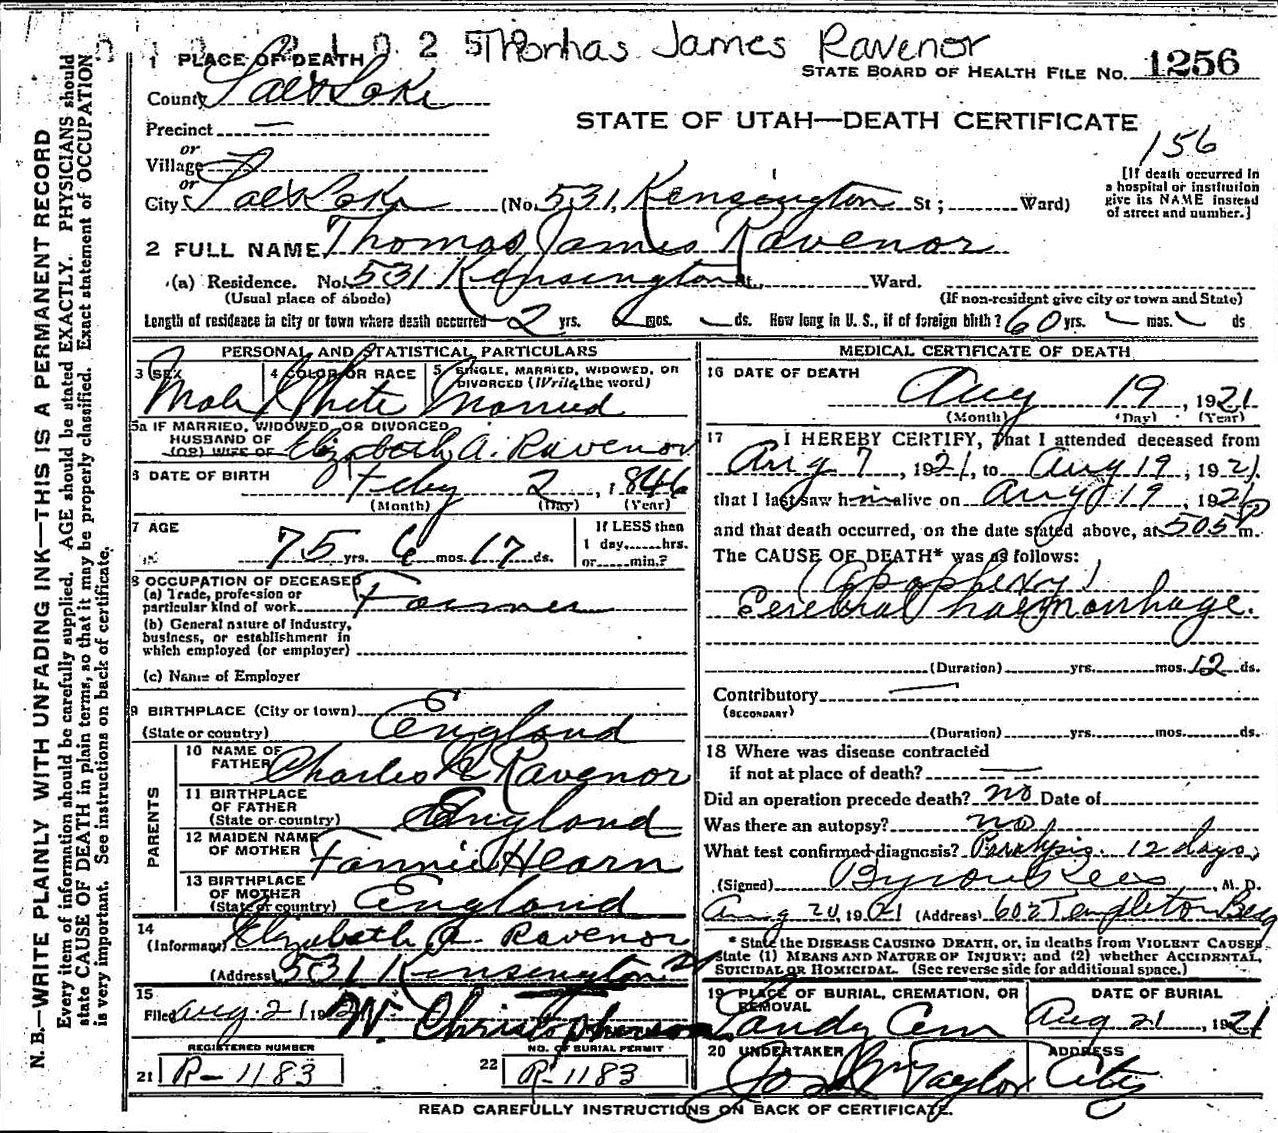 Thomas James Ravenor
STATE BOARD OF HEALTH FILE NO. 1256
1 PLACE OF DEATH
County Salt Lake
STATE OF UTAH—DEATH CERTIFICATE
Precinct —
156
or
Village
or
City Salt Lake (No. 531, Kensington St; Ward)
[If death occurred in a hospital or institution give its NAME instead of street and number.]
2 FULL NAME Thomas James Ravenor
(a) Residence. No. 531 Kensington St., Ward.
(Usual place of abode) (If non-resident give city or town and State)
Length of residence in city or town where death occurred 2 yrs. mos. ds. How long in U. S., if of foreign birth? 60 yrs. mos. ds
PERSONAL AND STATISTICAL PARTICULARS
3 SEX Male
4 COLOR OR RACE White
5 SINGLE, MARRIED, WIDOWED, OR DIVORCED (Write the word) Married
5a IF MARRIED, WIDOWED, OR DIVORCED
HUSBAND OF
(OR) WIFE OF Elizabeth A. Ravenor
6 DATE OF BIRTH Feby 2, 1846
(Month) (Day) (Year)
7 AGE 75 yrs. 6 mos. 17 ds.
If LESS than
1 day,......hrs.
or......min.?
8 OCCUPATION OF DECEASED
(a) Trade, profession or
particular kind of work Farmer
(b) General nature of industry,
business, or establishment in
which employed (or employer)
(c) Name of Employer
9 BIRTHPLACE (City or town)
(State or country) England
PARENTS
10 NAME OF
FATHER Charles Ravenor
11 BIRTHPLACE
OF FATHER
(State or country) England
12 MAIDEN NAME
OF MOTHER Fannie Hearn
13 BIRTHPLACE
OF MOTHER
(State or country) England
14
(Informant) Elizabeth A. Ravenor
(Address) 531 Kensington
15
Filed Aug. 21 192 W. Christopherson
REGISTERED NUMBER
21 R-1183
NO. OF BURIAL PERMIT
22 R-1183
MEDICAL CERTIFICATE OF DEATH
16 DATE OF DEATH
Aug 19, 1921
(Month) (Day) (Year)
17 I HEREBY CERTIFY, That I attended deceased from
Aug 7, 1921, to Aug 19, 1921
that I last saw him alive on Aug 19, 1921
and that death occurred, on the date stated above, at 505 P m.
The CAUSE OF DEATH* was as follows:
(Apoplexy)
Cerebral haemorrhage.
(Duration) yrs. mos. 12 ds.
Contributory —
(SECONDARY)
(Duration) yrs. mos. ds.
18 Where was disease contracted
if not at place of death? —
Did an operation precede death? no Date of
Was there an autopsy? no
What test confirmed diagnosis? Paralysis. 12 days.
(Signed) Byron Rees, M. D.
Aug 20, 1921 (Address) 602 Templeton Bldg
* State the DISEASE CAUSING DEATH, or, in deaths from VIOLENT CAUSES,
state (1) MEANS AND NATURE OF INJURY; and (2) whether ACCIDENTAL,
SUICIDAL OR HOMICIDAL. (See reverse side for additional space.)
19 PLACE OF BURIAL, CREMATION, OR REMOVAL
Sandy Cem
DATE OF BURIAL
Aug 21, 1921
20 UNDERTAKER
Jos Wm Taylor
ADDRESS
City
READ CAREFULLY INSTRUCTIONS ON BACK OF CERTIFICATE.
N. B.—WRITE PLAINLY WITH UNFADING INK—THIS IS A PERMANENT RECORD
Every item of information should be carefully supplied. AGE should be stated EXACTLY. PHYSICIANS should
state CAUSE OF DEATH in plain terms, so that it may be properly classified. Exact statement of OCCUPATION
is very important. See instructions on back of certificate.